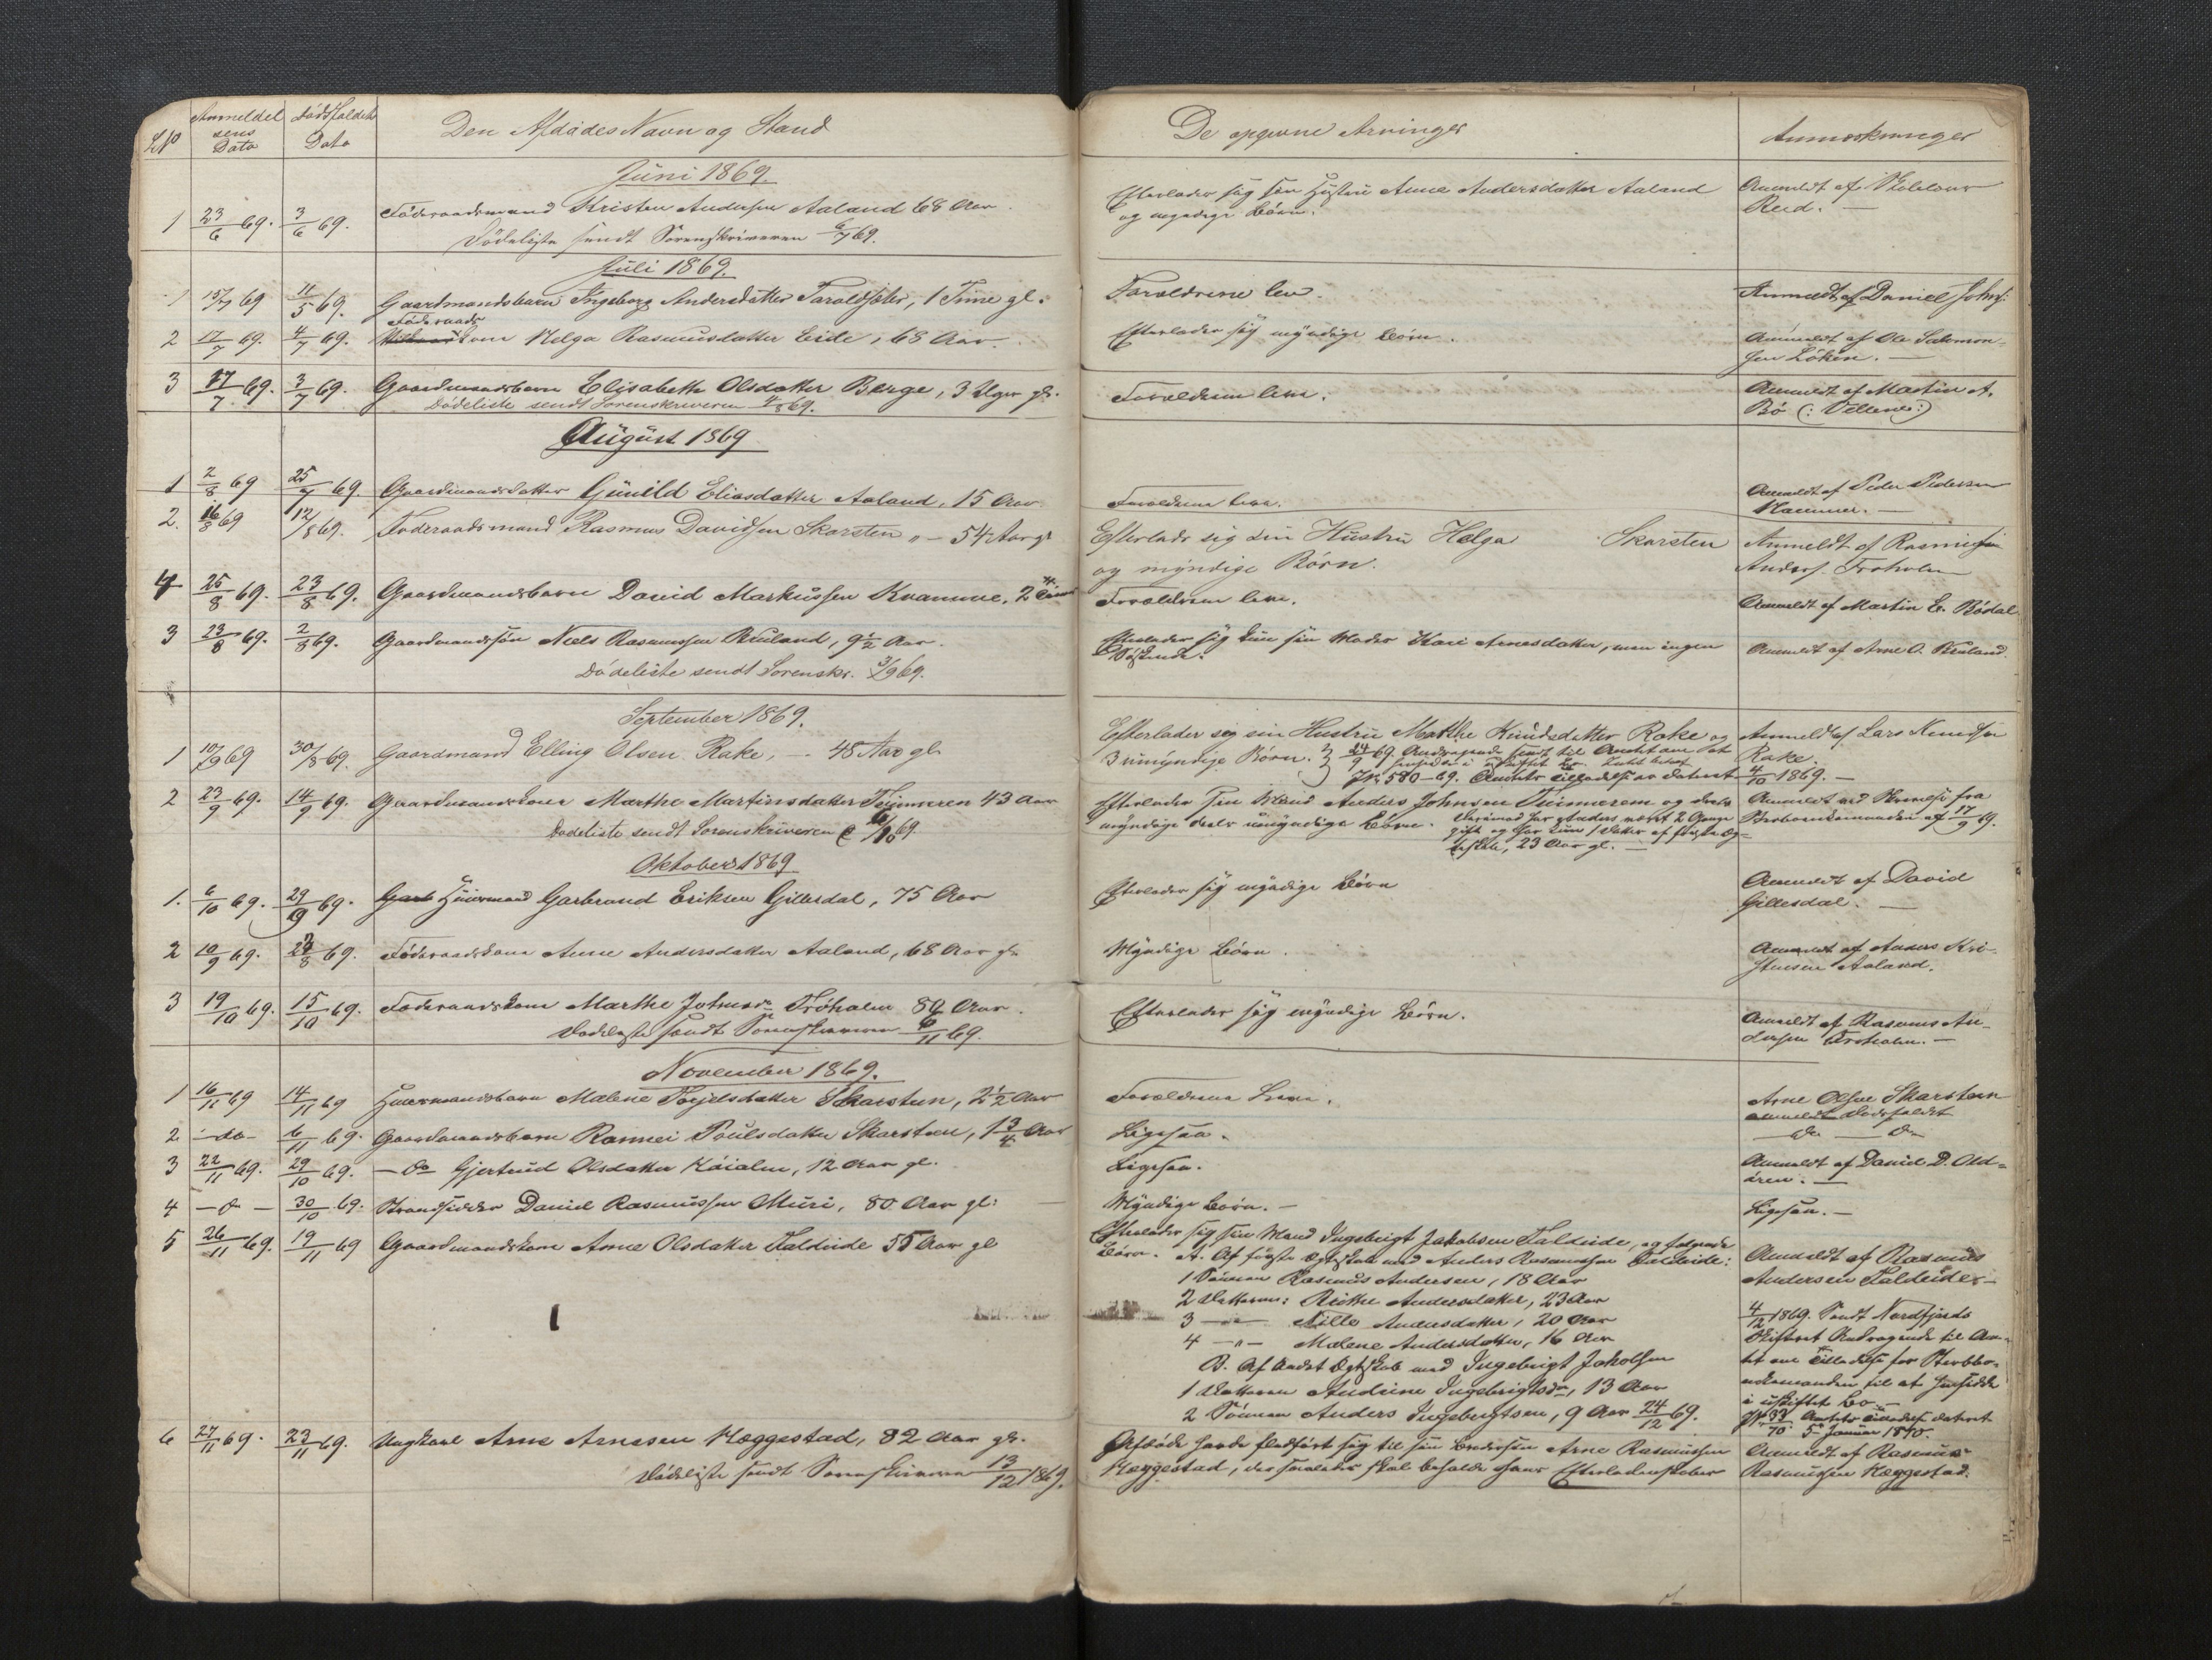 LNo
Anmeldel
sens
Data
Dødsfaldets
Data
Den Afdødes Navn og Stand
De opgivne Arvinger
Anmærkninger
Juni 1869.
1 23/6 69. 3/6 69. Föderaadsmand Kristen Andersen Aaland 68 Aar.
Dödeliste sendt Sorenskriveren 6/7 69.
Efterlader sig sin Hustru Anne Andersdatter Aaland
og myndige Börn.
Anmeldt af
Reed. —
Juli 1869.
1 15/7 69 11/5 69. Gaardmandsbarn Ingeborg Andersdatter, 1 Time gl.
Forældrene lev.
Anmeldt af Daniel Johns:
Föderaads
2 17/7 69. 4/7 69. kone Helga Rasmusdatter Eide, 68 Aar.
Efterlader sig myndige Börn.
Anmeldt af Ole Salomon-
sen Löken. —
3 17/7 69. 3/7 69. Gaardmandsbarn Elisabeth Olsdatter Berge, 3 Uger gl.
Dödeliste sendt Sorenskriveren 4/8 69.
Forældrene leve.
Anmeldt af Martin A.
Bö (: Vellene:)
August 1869
1 2/8 69 25/7 69. Gaardmandsdatter Gunild Eliasdatter Aaland, 15 Aar.
Forældrene leve.
Anmeldt af Peder Pedersen
Hammer. —
2. 16/8 69 12/8 69. Föderaadsmand Rasmus Davidsen Skarsten " - 54 Aar gl
Efterlader sig sin Hustru Helga Skarsten
og myndige Börn.
Anmeldt af Rasmus
Anders. Troholm
4 25/8 69. 23/8 69. Gaardmandsbarn David Markussen Kvamme, 2
Forældrene leve.
Anmeldt af Martin E. Bödal
3 23/8 69. 2/8 69. Gaardmandssön Niels Rasmussen Reuland, 9 1/2 Aar.
Dödeliste sendt Sorenskr. 3/9 69.
Efterlader sig kun sin Moder Kari Arnesdatter, men ingen
Söskende.
Anmeldt af Arne O. Reuland.
September 1869.
1 10/9 69 30/8 69. Gaardmand Elling Olsen Rake, - 48 Aar gl.
Efterlader sig sin Hustru Marthe Knudsdatter Rake og
3 umyndige Börn. } 24/9 69. Andragende sendt til Amtet om at
JNo 580-69. Amtets Tilladelse er dateret
Anmeldt af Lars Knudsen
Rake.
4/10 1869. —
2 23/9 69. 14/9 69. Gaardmandskone Marthe Martinsdatter 43 Aar
Dödeliste sendt Sorenskriveren 6/10 69.
Efterlader sin Mand Anders Johnsen og dels
myndige dels umyndige Börn. har Anders været 2 Gange
gift og har kun 1 Datter af förste Æg=
teskab, 23 Aar gl. —
Anmeldt ved Skrivelse fra
17/9 69.
Oktober 1869
1. 6/10 69. 29/9 69. Huusmand Garbrand Eriksen Gillesdal, 75 Aar
Efterlader sig myndige Börn
Anmeldt af David
Gillesdal. —
2 10/9 69. 28/8 69. Föderaadskone Anne Andersdatter Aaland, 68 Aar gl.
Myndige Börn.
Anmeldt af Anders Kri-
stensen Aaland.
3 19/10 69. 15/10 69. Föderaadskone Marthe Johnsdr Tröholm Aar.
Dödeliste sendt Sorenskriveren 6/11 69.
Efterlader sig myndige Börn.
Anmeldt af Rasmus An-
dersen Troholm. —
November 1869.
1 16/11 69 14/11 69 Huusmandsbarn Malene Skarsten, 2 1/2 Aar
Forældrene Leve.
Arne Olsen Skarsteen
anmeldt Dödsfaldet
2 - do - 6/11 69. Gaardmandsbarn Rannei Poulsdatter Skarsteen, 1 3/4 Aar
Ligesaa.
— do — do
3 22/11 69. 29/10 69. - do Gjertrud Olsdatter, 12 Aar gl.
Ligesaa.
Anmeldt af Daniel D. Old=
ören. —
4 - do - 30/10 69. Strandsidder Daniel Rasmussen Muri, 80 Aar gl.
Myndige Börn. —
Ligesaa. —
5 26/11 69. 19/11 69 Gaardmandskone Anne Olsdatter Faldeide 55 Aar gl
Efterlader sig sin Mand Ingebrigt Jakobsen Faldeide, og fölgende
Börn. A. Af förste Ægteskab med Anders Rasmussen Faldeide:
1 Sönnen Rasmus Andersen, 18 Aar
2 Datteren: Andersdatter, 23 Aar
3 — " — Andersdatter, 20 Aar
4 — " — Malene Andersdatter, 16 Aar
B. Af Andet Ægteskab med Ingebrigt Jakobsen
1 Datteren Andrine Ingebrigtsdr, 13 Aar
2 Sönnen Anders Ingebrigtsen, 9 Aar 24/12 69.
Anmeldt af Rasmus
Andersen Faldeide. —
4/12 1869. Sendt Nordfjords
Skifteret Andragende til Am-
tet om Tilladelse for Sterbbo-
enkemanden til at hensidde
i uskiftet Bo —
JNo 33/70 Amtets Tilladelse dateret
5 Januar 1870.
6 27/11 69. 23/11 69. Ungkarl Arne Arnesen Hæggestad, 82 Aar gl.
Dödeliste sendt Sorenskriveren 13/12 1869.
Afdöde havde fledfört sig til sin Brodersön Arne Rasmussen
Hæggestad, der saaledes skal beholde hans Efterladenskaber
Anmeldt af Rasmus
Rasmussen Hæggestad.